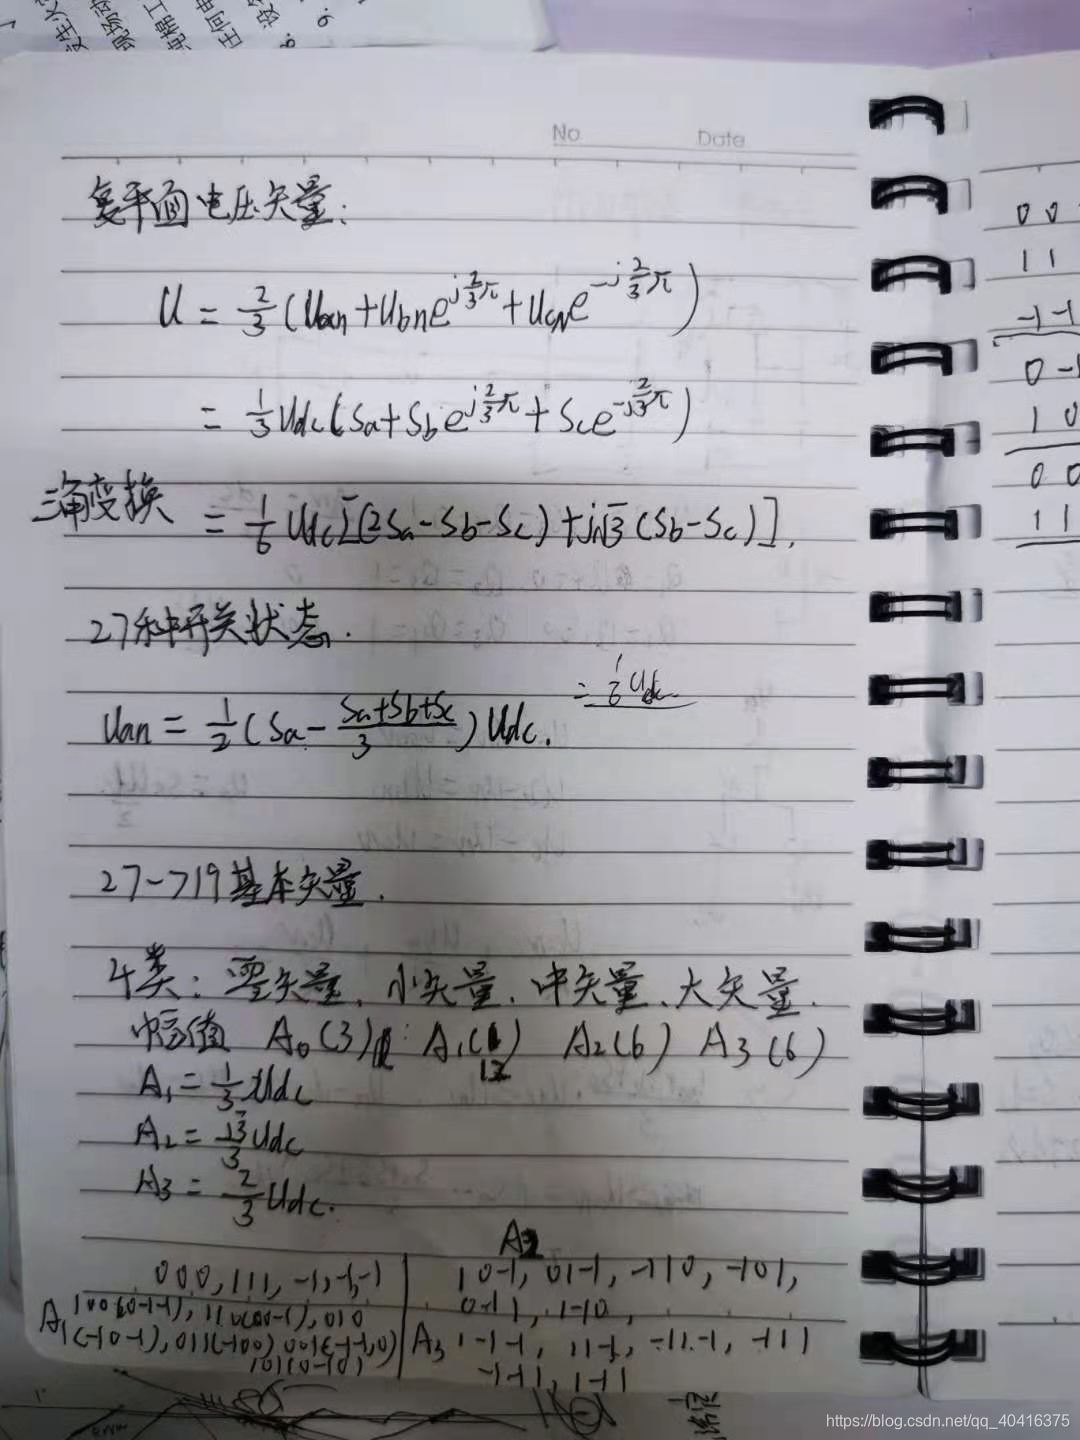 发生火
现场动
电精工
任何电
8. 设
9.
No Date
复平面电压矢量:
U = 2/3 (Uan + Ubn e^{j2/3π} + Ucn e^{-j2/3π})
= 1/3 Udc (Sa + Sb e^{j2/3π} + Sc e^{-j2/3π})
三角变换 = 1/6 Udc [(2Sa - Sb - Sc) + j√3 (Sb - Sc)].
27种开关状态.
Uan = 1/2 (Sa - (Sa+Sb+Sc)/3) Udc. = 1/6 Udc
27→19基本矢量.
4类: 零矢量、小矢量、中矢量、大矢量.
幅值 A0 (3) A1 (12) A2 (6) A3 (6)
A1 = 1/3 Udc
A2 = √3/3 Udc
A3 = 2/3 Udc.
A2
000, 111, -1,-1,-1 10-1, 01-1, -110, -101,
A1 100(0-1-1), 110(00-1), 010 0-11, 1-10
(-10-1), 011(-100), 001(-1-1,0) A3 1-1-1, 11-1, -11-1, -111
101(0-10) -1-11, 1-11
0 0
1 1
-1 -1
0 -1
1 0
0 0
1 1
https://blog.csdn.net/qq_40416375